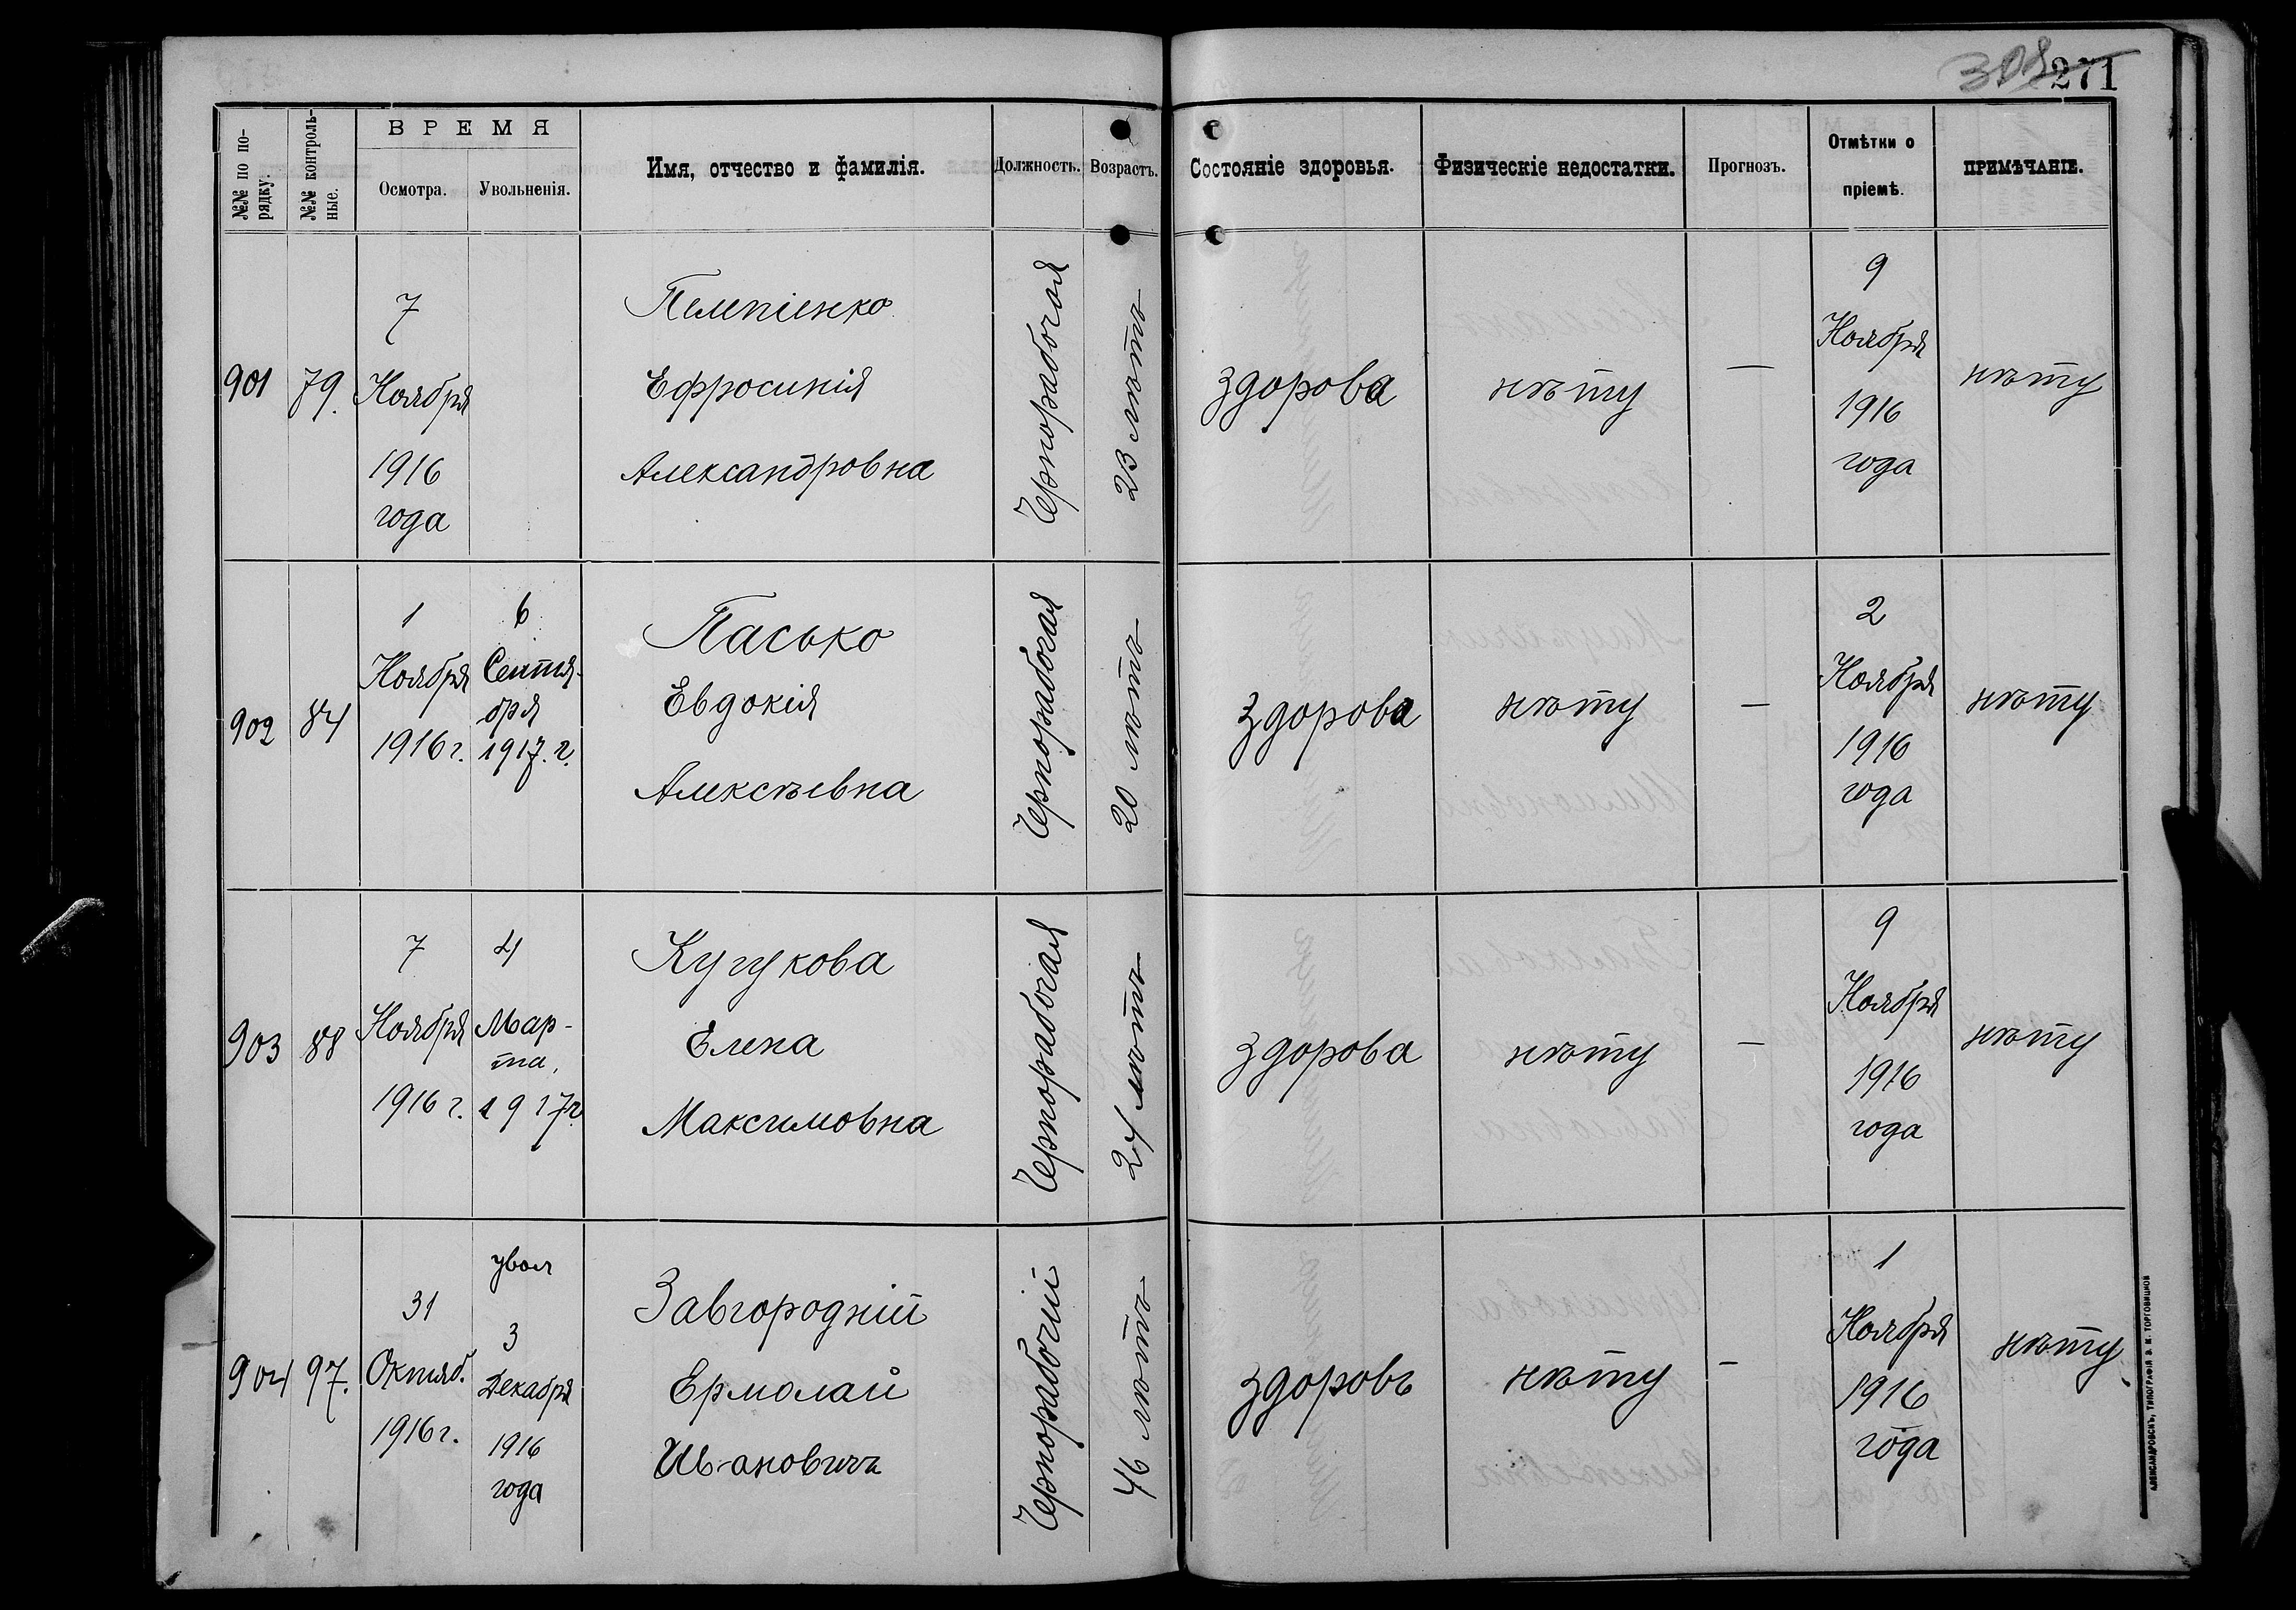 271
№№ по по-
рядку.
№№ контроль-
ные.
ВРЕМЯ
Осмотра.
Увольненія.
Имя, отчество и фамилія.
Должность.
Возрастъ.
Состояніе здоровья.
Физическіе недостатки.
Прогнозъ.
Отмѣтки о
пріемѣ.
ПРИМѢЧАНІЕ.
901
79.
7
Ноября
1916
года
Ефросинія
Александровна
Чернорабочая
23 лѣтъ
здорова
нѣту
—
9
Ноября
1916
года
нѣту
902
84
1
Ноября
1916 г.
6
Сентя-
бря
1917. г.
Пасько
Евдокія
Алексѣевна
Чернорабочая
20 лѣтъ
здорова
нѣту
—
2
Ноября
1916
года
нѣту
903
88
7
Ноября
1916 г.
4
Мар-
та,
1917г
Кучукова
Елена
Максимовна
Чернорабочая
24 лѣтъ
здорова
нѣту
—
9
Ноября
1916
года
нѣту
904
97.
31
Октяб.
1916 г.
увол
3
Декабря
1916
года
Завгородній
Ермолай
Ивановичъ
Чернорабочій
46 лѣтъ
здоровъ
нѣту
—
1
Ноября
1916
года
нѣту
АЛЕКСАНДРОВСКЪ, ТИПОГРАФІЯ Э. И. ТОРГОВИЦКОЙ